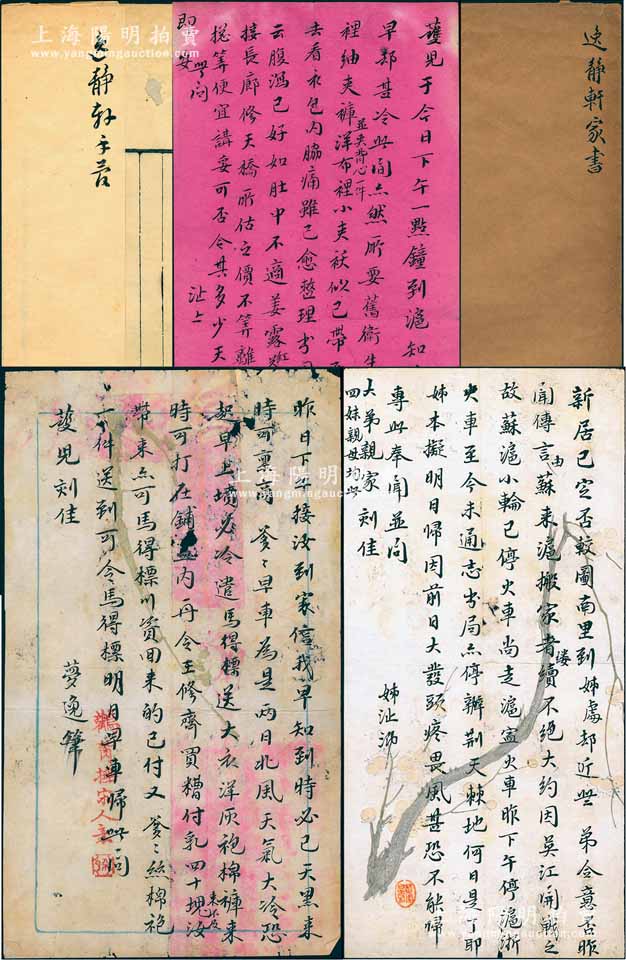 上海陽明拍賣
www.yangmingauction.com
逸靜軒手蒼
護兒于今日下午一點鐘到滬知
早鄴甚冷此間亦然所要舊衛生
裡紬夾褲洋布裡小夾袄似已帶
並夾背心一件
去看衣包内脇痛雖已愈整理書
云腹瀉已好如肚中不適姜露
接長廊修天橋所估之價不算離
搃算便宜講妥可否令其多少天
即此問
沚上
逸靜軒家書
昨日下午接汝到家信我早知到時必已天黑來
時可稟商爹爹早車為是兩日北風天氣大冷恐
起早上墳必冷遣馬得標送大衣洋灰袍棉褲來
時可打在鋪蓋内再令王修齋買糟付乳四十塊汝
帶來亦可馬得標川資回來的已付又爹爹絲棉袍
一件送到可令馬得標明日早車歸此問
護兒刻佳
夢逸肇
新居已定否較圖南里到姊處却近些弟令意否昨
聞傳言由蘇來滬搬家者續續不絕大約因吳江開戰之
故蘇滬小輪已停火車尚走滬寧火車昨下午停滬浙
火車至今未通志書局亦停辦荆天棘地何日是了耶
姊本擬明日歸因前日大發頭疼畏風甚恐不能歸
專此奉聞並問
大弟親家刻佳
四妹親母均此
姊沚泐